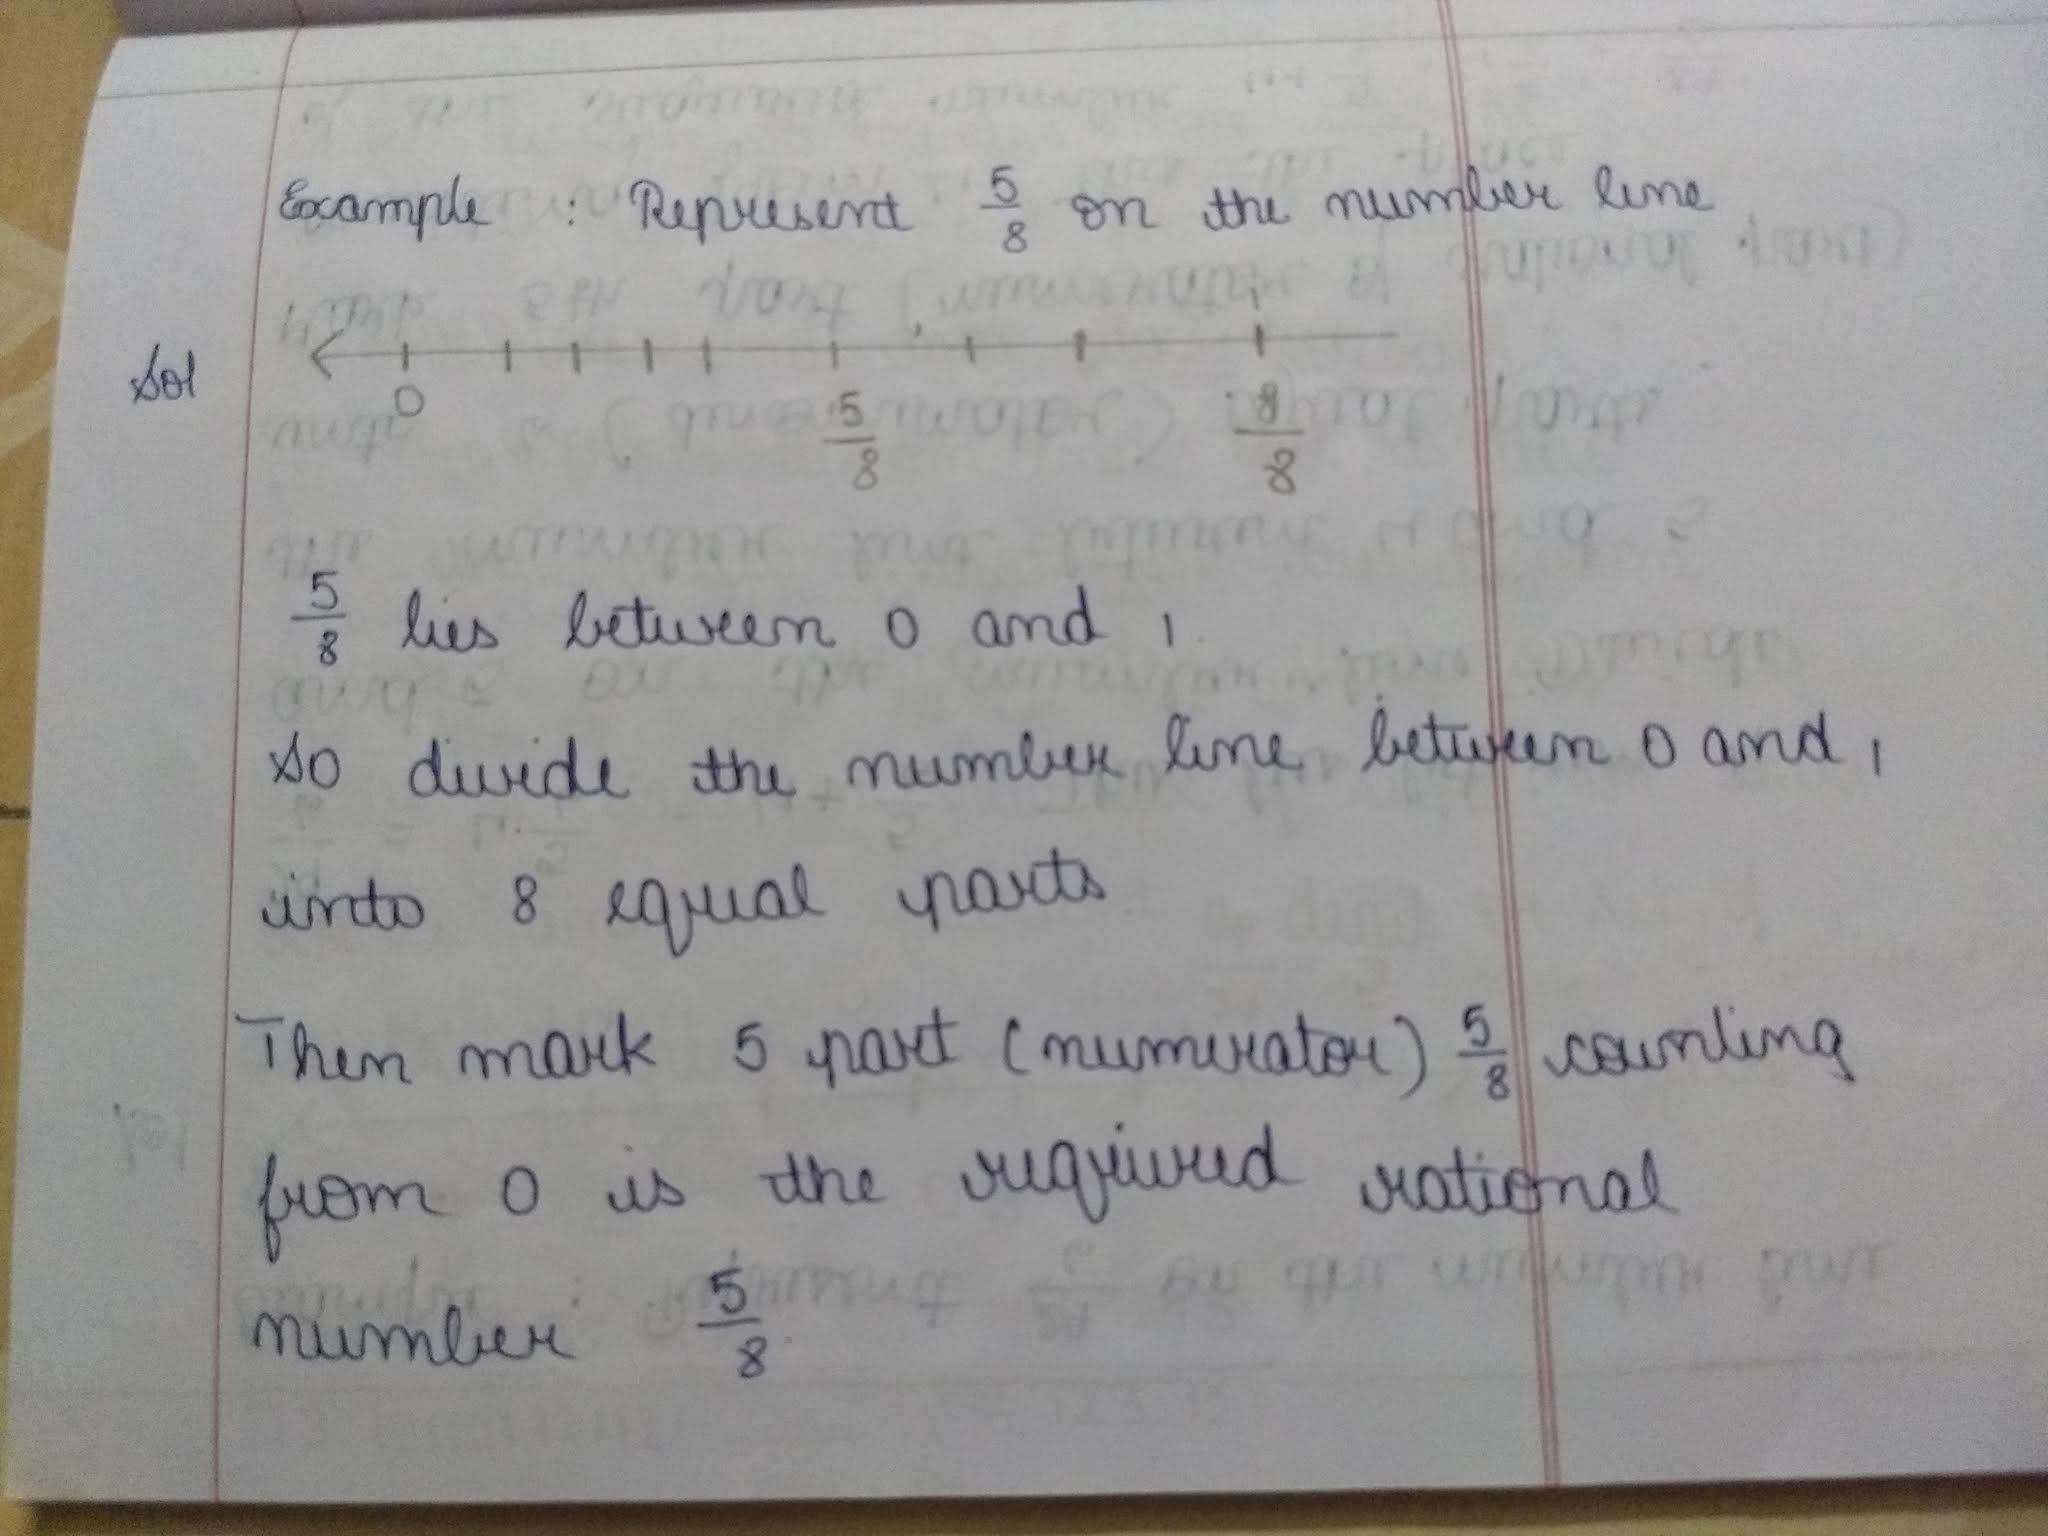 Example : Represent 5/8 on the number line
Sol
0 5/8 8/8
1
5/8 lies between 0 and 1.
So divide the number line between 0 and 1
into 8 equal parts
Then mark 5 part (numerator) 5/8 counting
from 0 is the required rational
number 5/8